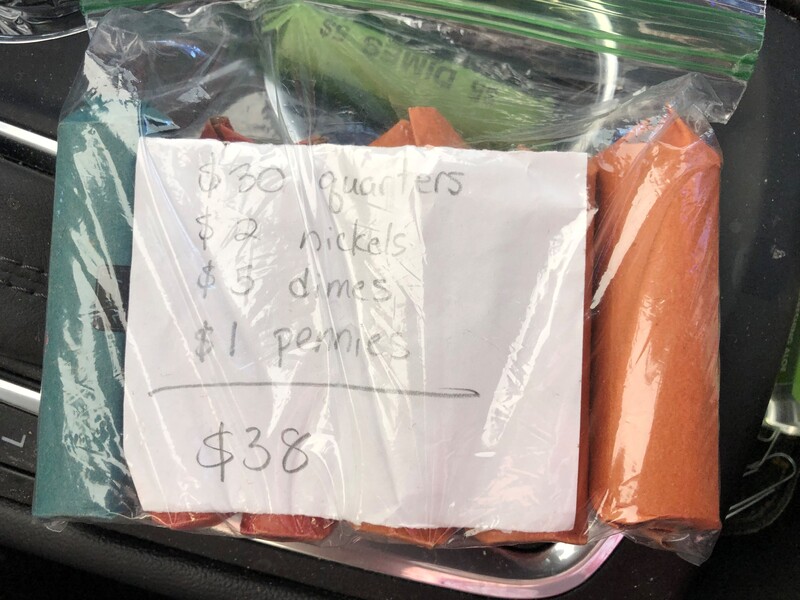 DIMES
$30 quarters
$2 nickels
$5 dimes
$1 pennies
$38